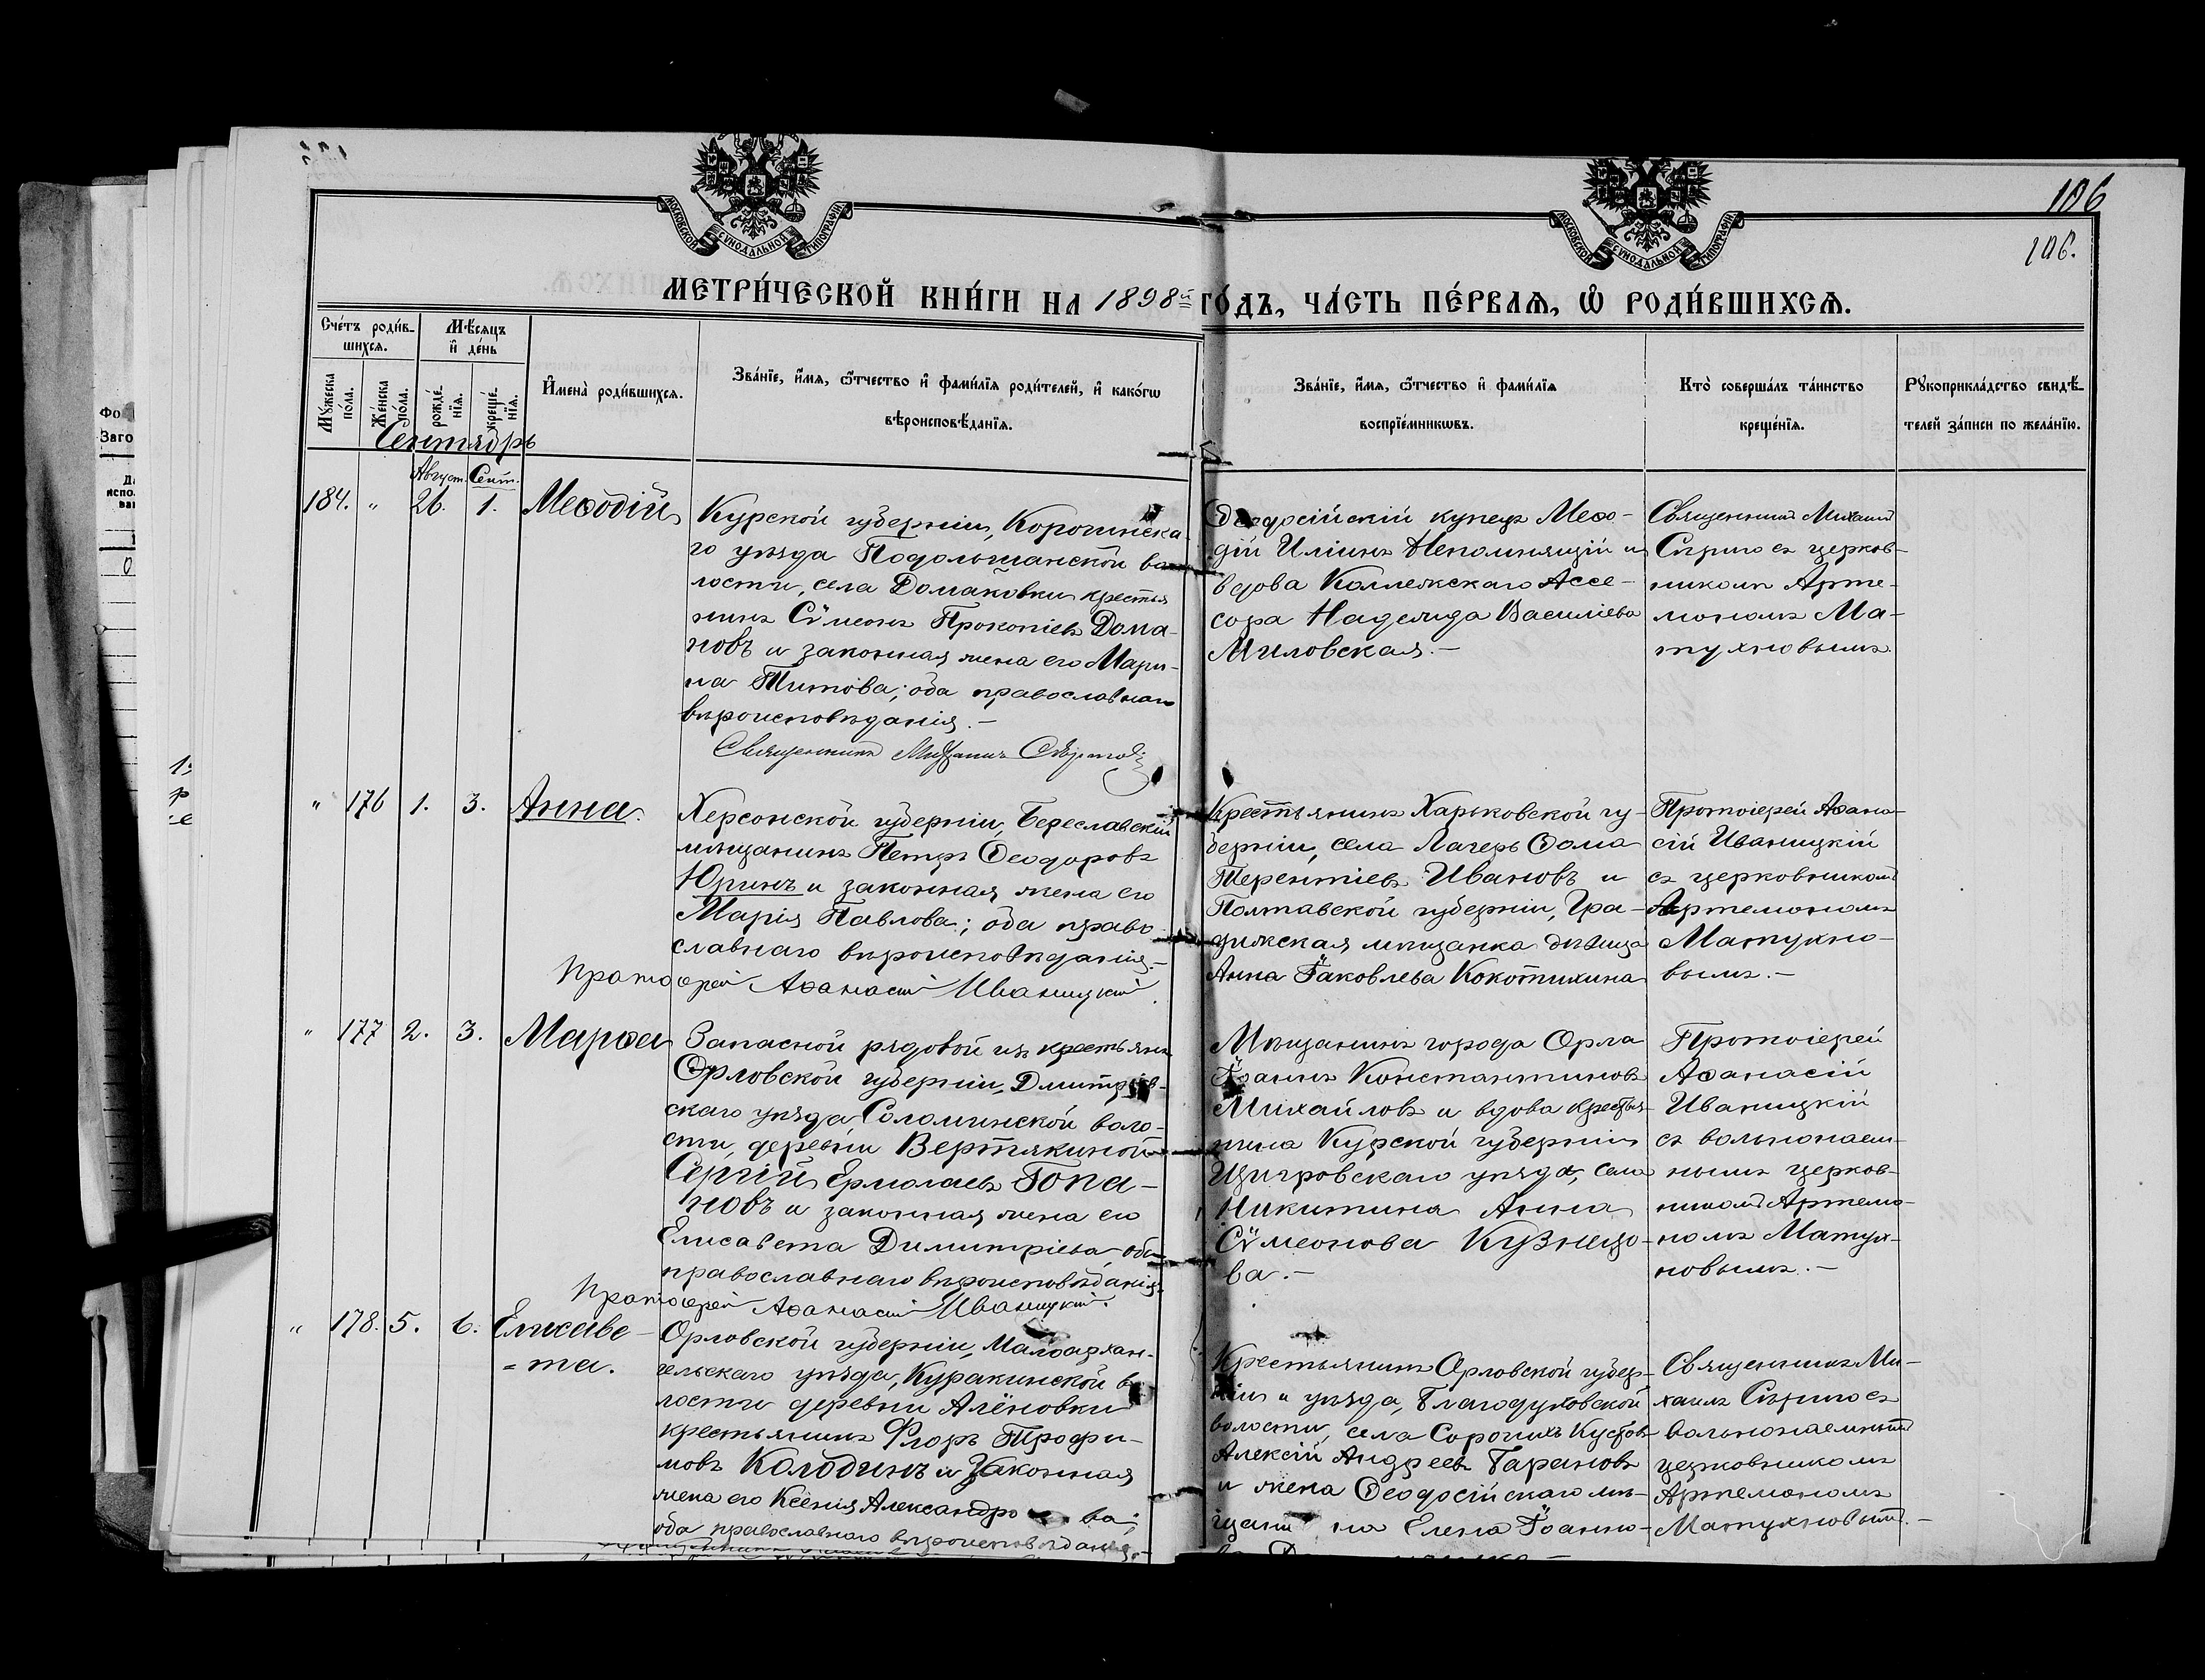 106
106.
МОСКОВСКОЙ СѴНОДАЛЬНОЙ ТИПОГРАФІИ
МОСКОВСКОЙ СѴНОДАЛЬНОЙ ТИПОГРАФІИ
МЕТРИ́ЧЕСКОЙ КНИ́ГИ НА 1898й ГО́ДЪ, ЧА́СТЬ ПЕ́РВАѦ, Ѽ РОДИ́ВШИХСѦ.
Сче́тъ роди́в-
шихсѧ.
Мꙋ́жеска по́ла.
Же́нска по́ла.
Мѣ́сѧцъ
и҆ де́нь
рожде́-
нїѧ.
креще́-
нїѧ.
И҆мена̀ роди́вшихсѧ.
Зва́нїе, и҆́мѧ, ѻ҆́тчество и҆ фами́лїѧ роди́телей, и҆ како́гѡ
вѣроисповѣ́данїѧ.
Зва́нїе, и҆́мѧ, ѻ҆́тчество и҆ фами́лїѧ
воспрїе́мникѡвъ.
Кто̀ соверша́лъ та́инство
креще́нїѧ.
Рꙋкоприкла́дство свидѣ́-
телей за́писи по жела́нїю.
Сентябрь
Август. Сент.
184. " 26. 1. Меѳодій
Курской губерніи, Корочинска-
го уѣзда Подольшанской во-
лости, села Домаковки крестья
нинъ Сѵмеонъ Прокопіевъ Дома-
новъ и законная жена его Мари-
на Титова; оба православнаго
вѣроисповѣданія.-
Священникъ Михаилъ
Ѳеодосійскій купецъ Меѳо-
дій Иліинъ Непомнящій и
вдова Коллежскаго Ассе-
сора Надежда Василіева
Миловская.-
Священникъ Михаилъ
Сѣрино съ церков-
никомъ Арте-
мономъ Ма-
тухновымъ.
" 176 1. 3. Анна.
Херсонской губерніи, Береславскій
мѣщанинъ Петръ Ѳеодоровъ
Юринъ и законная жена его
Марія Павлова; оба право-
славнаго вѣроисповѣданія.-
Протоіерей Аѳанасій Иваницкій.
Крестьянинъ Харьковской гу-
берніи, села Лагерь Ѳома
Терентіевъ Ивановъ и
Полтавской губерніи, Гра-
дижская мѣщанка дѣвица
Анна Іаковлева Кокотихина
Протоіерей Аѳана-
сій Иваницкій
съ церковникомъ
Артемономъ
Матухно-
вымъ.-
" 177 2. 3. Марѳа
Запасной рядовой изъ крестьянъ
Орловской губерніи, Дмитров-
скаго уѣзда, Соломинской воло-
сти, деревни Вертякиной
Сергій Ермолаевъ Гопа-
новъ и законная жена его
Елисавета Димитріева, оба
православнаго вѣроисповѣданія.
Протоіерей Аѳанасій Иваницкій.
Мѣщанинъ города Орла
Іоаннъ Константиновъ
Михайловъ и вдова крестья-
нина Курской губерніи
Щигровскаго уѣзда, села
Никитина Анна
Сѵмеонова Кузнецо-
ва.-
Протоіерей
Аѳанасій
Иваницкій
съ вольнонаем-
нымъ церков-
никомъ Артемо-
номъ Матух-
новымъ.-
" 178. 5. 6. Елисаве-
=та.
Орловской губерніи, Малоархан-
гельскаго уѣзда, Куракинской во
лости деревни Алёновки
крестьянинъ Флоръ Трофи-
мовъ Колодинъ и законная
жена его Ксенія Александрова;
оба православнаго вѣроисповѣданія.-
Крестьянинъ Орловской губер-
ніи и уѣзда, Благодуховской
волости, села Сорочихъ Кустовъ
Алексій Андреевъ Барановъ
и жена Ѳеодосійскаго мѣ-
щанина Елена Іоанно-
Священникъ Ми-
хаилъ Сѣрино съ
вольнонаемнымъ
церковникомъ
Артемономъ
Матухновымъ.-